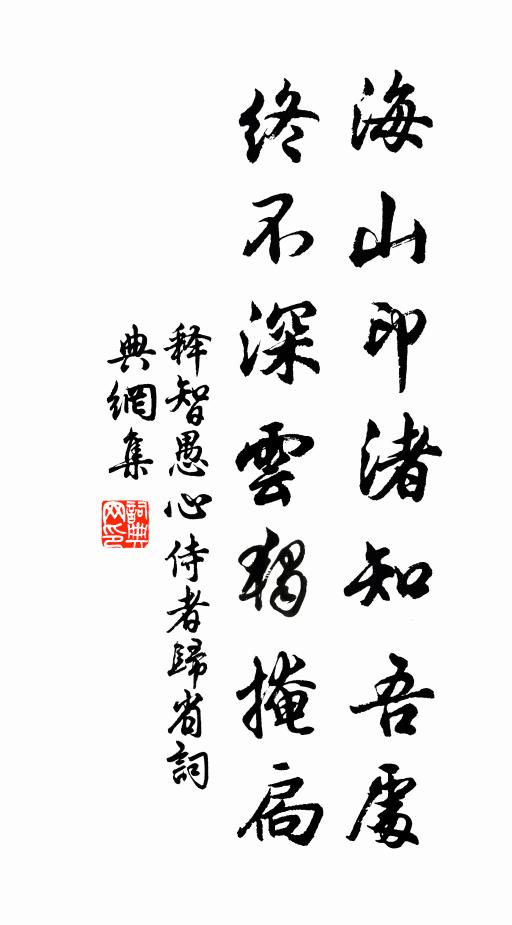 海山印渚知吾處
終不深雲獨掩扃
释智愚心侍者歸省詞
典網集
詞典
网印